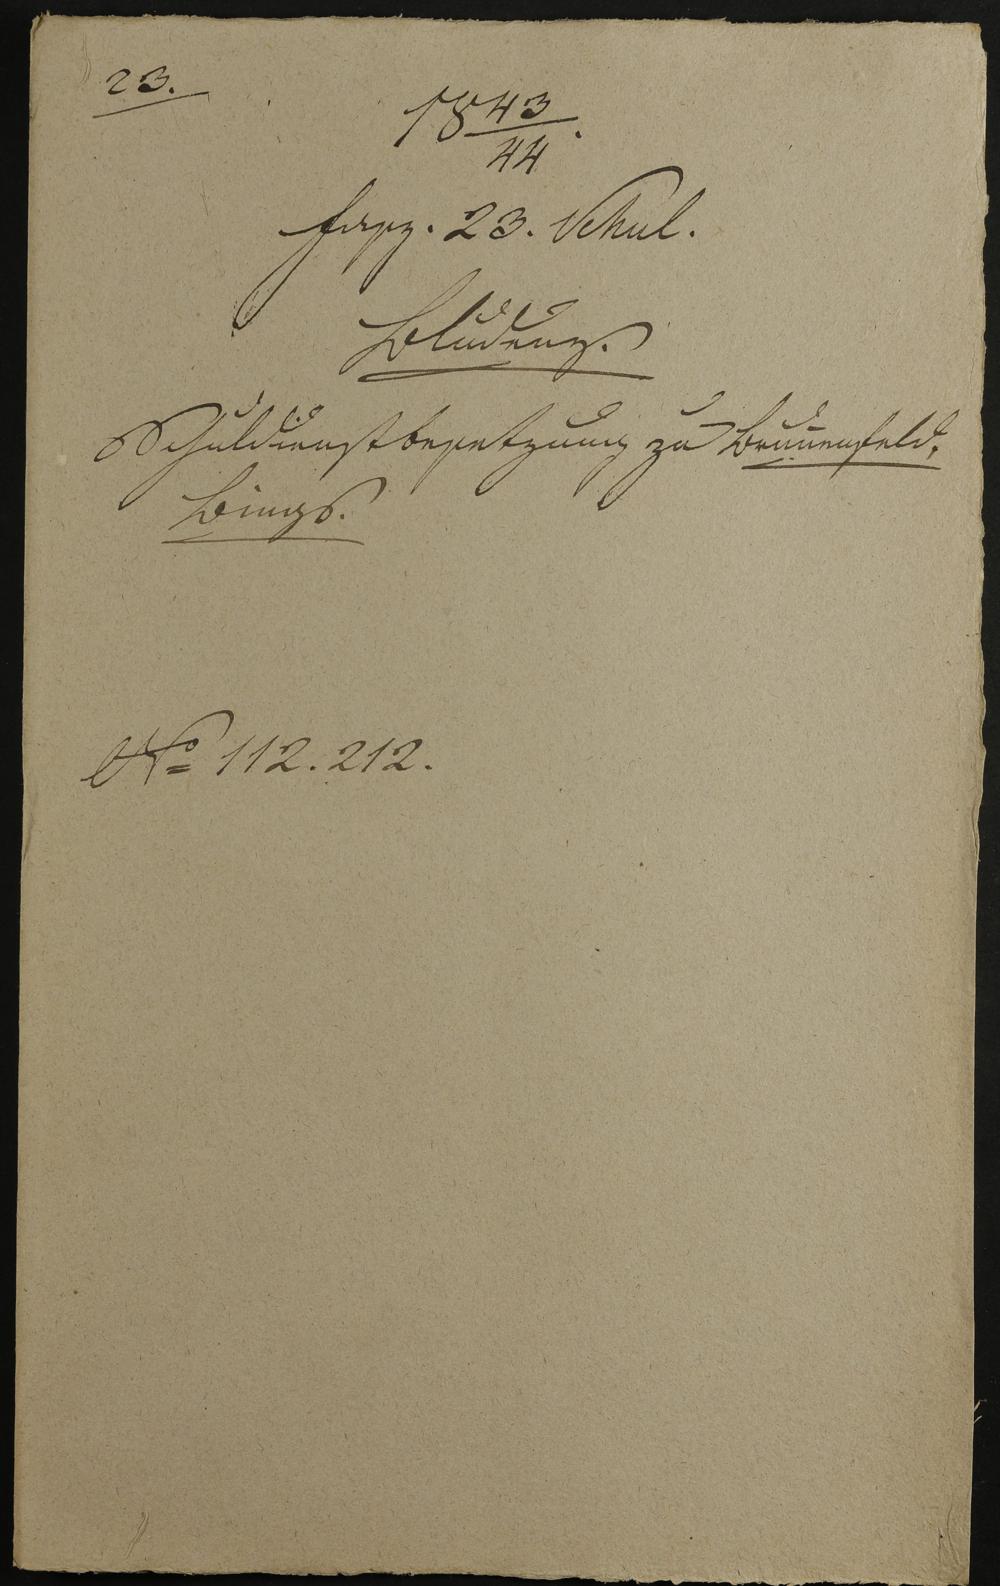 23.
1843/44.
fasz. 23. Schul.
Bludenz.
Schuldienstbesetzung zu Brunenfeld.
Bings.
No 112. 212.